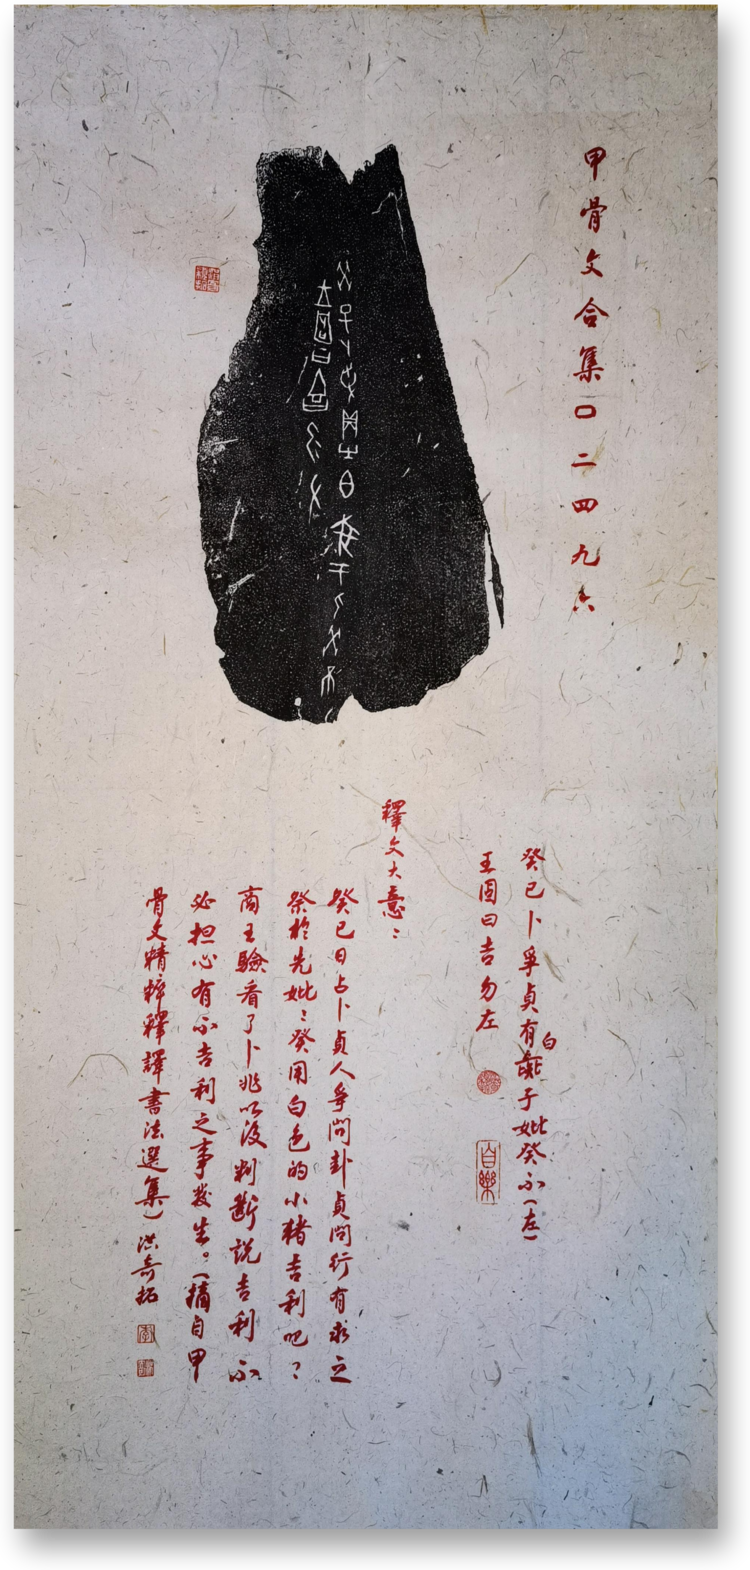 甲骨文合集〇二四九六
癸巳卜爭貞有白彘于妣癸不（左）
王固曰吉勿左
自樂
釋文大意：
癸巳日占卜貞人爭問卦貞問行有求之
祭於先妣：癸用白色的小豬吉利吧？
商王驗看了卜兆以後判斷說吉利不
必担心有不吉利之事發生。（摘自甲
骨文精粹釋譯書法選集）洪奇拓